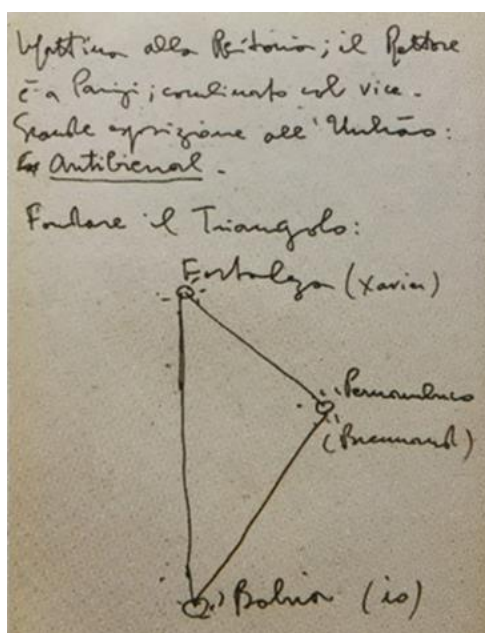 Mattina alla Reitoria; il Rettore
è a Parigi; combinato col vice.
Grande esposizione all'Unhão:
Antibienal.
Fondare il Triangolo:
Fortaleza (Xavier)
Pernambuco
(Brennand)
Bahia (io)